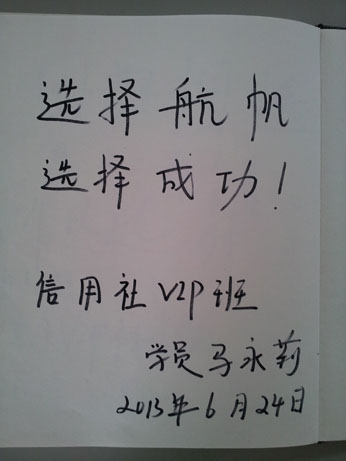 选择航帆
选择成功!
信用社VIP班
学员马永莉
2013年6月24日